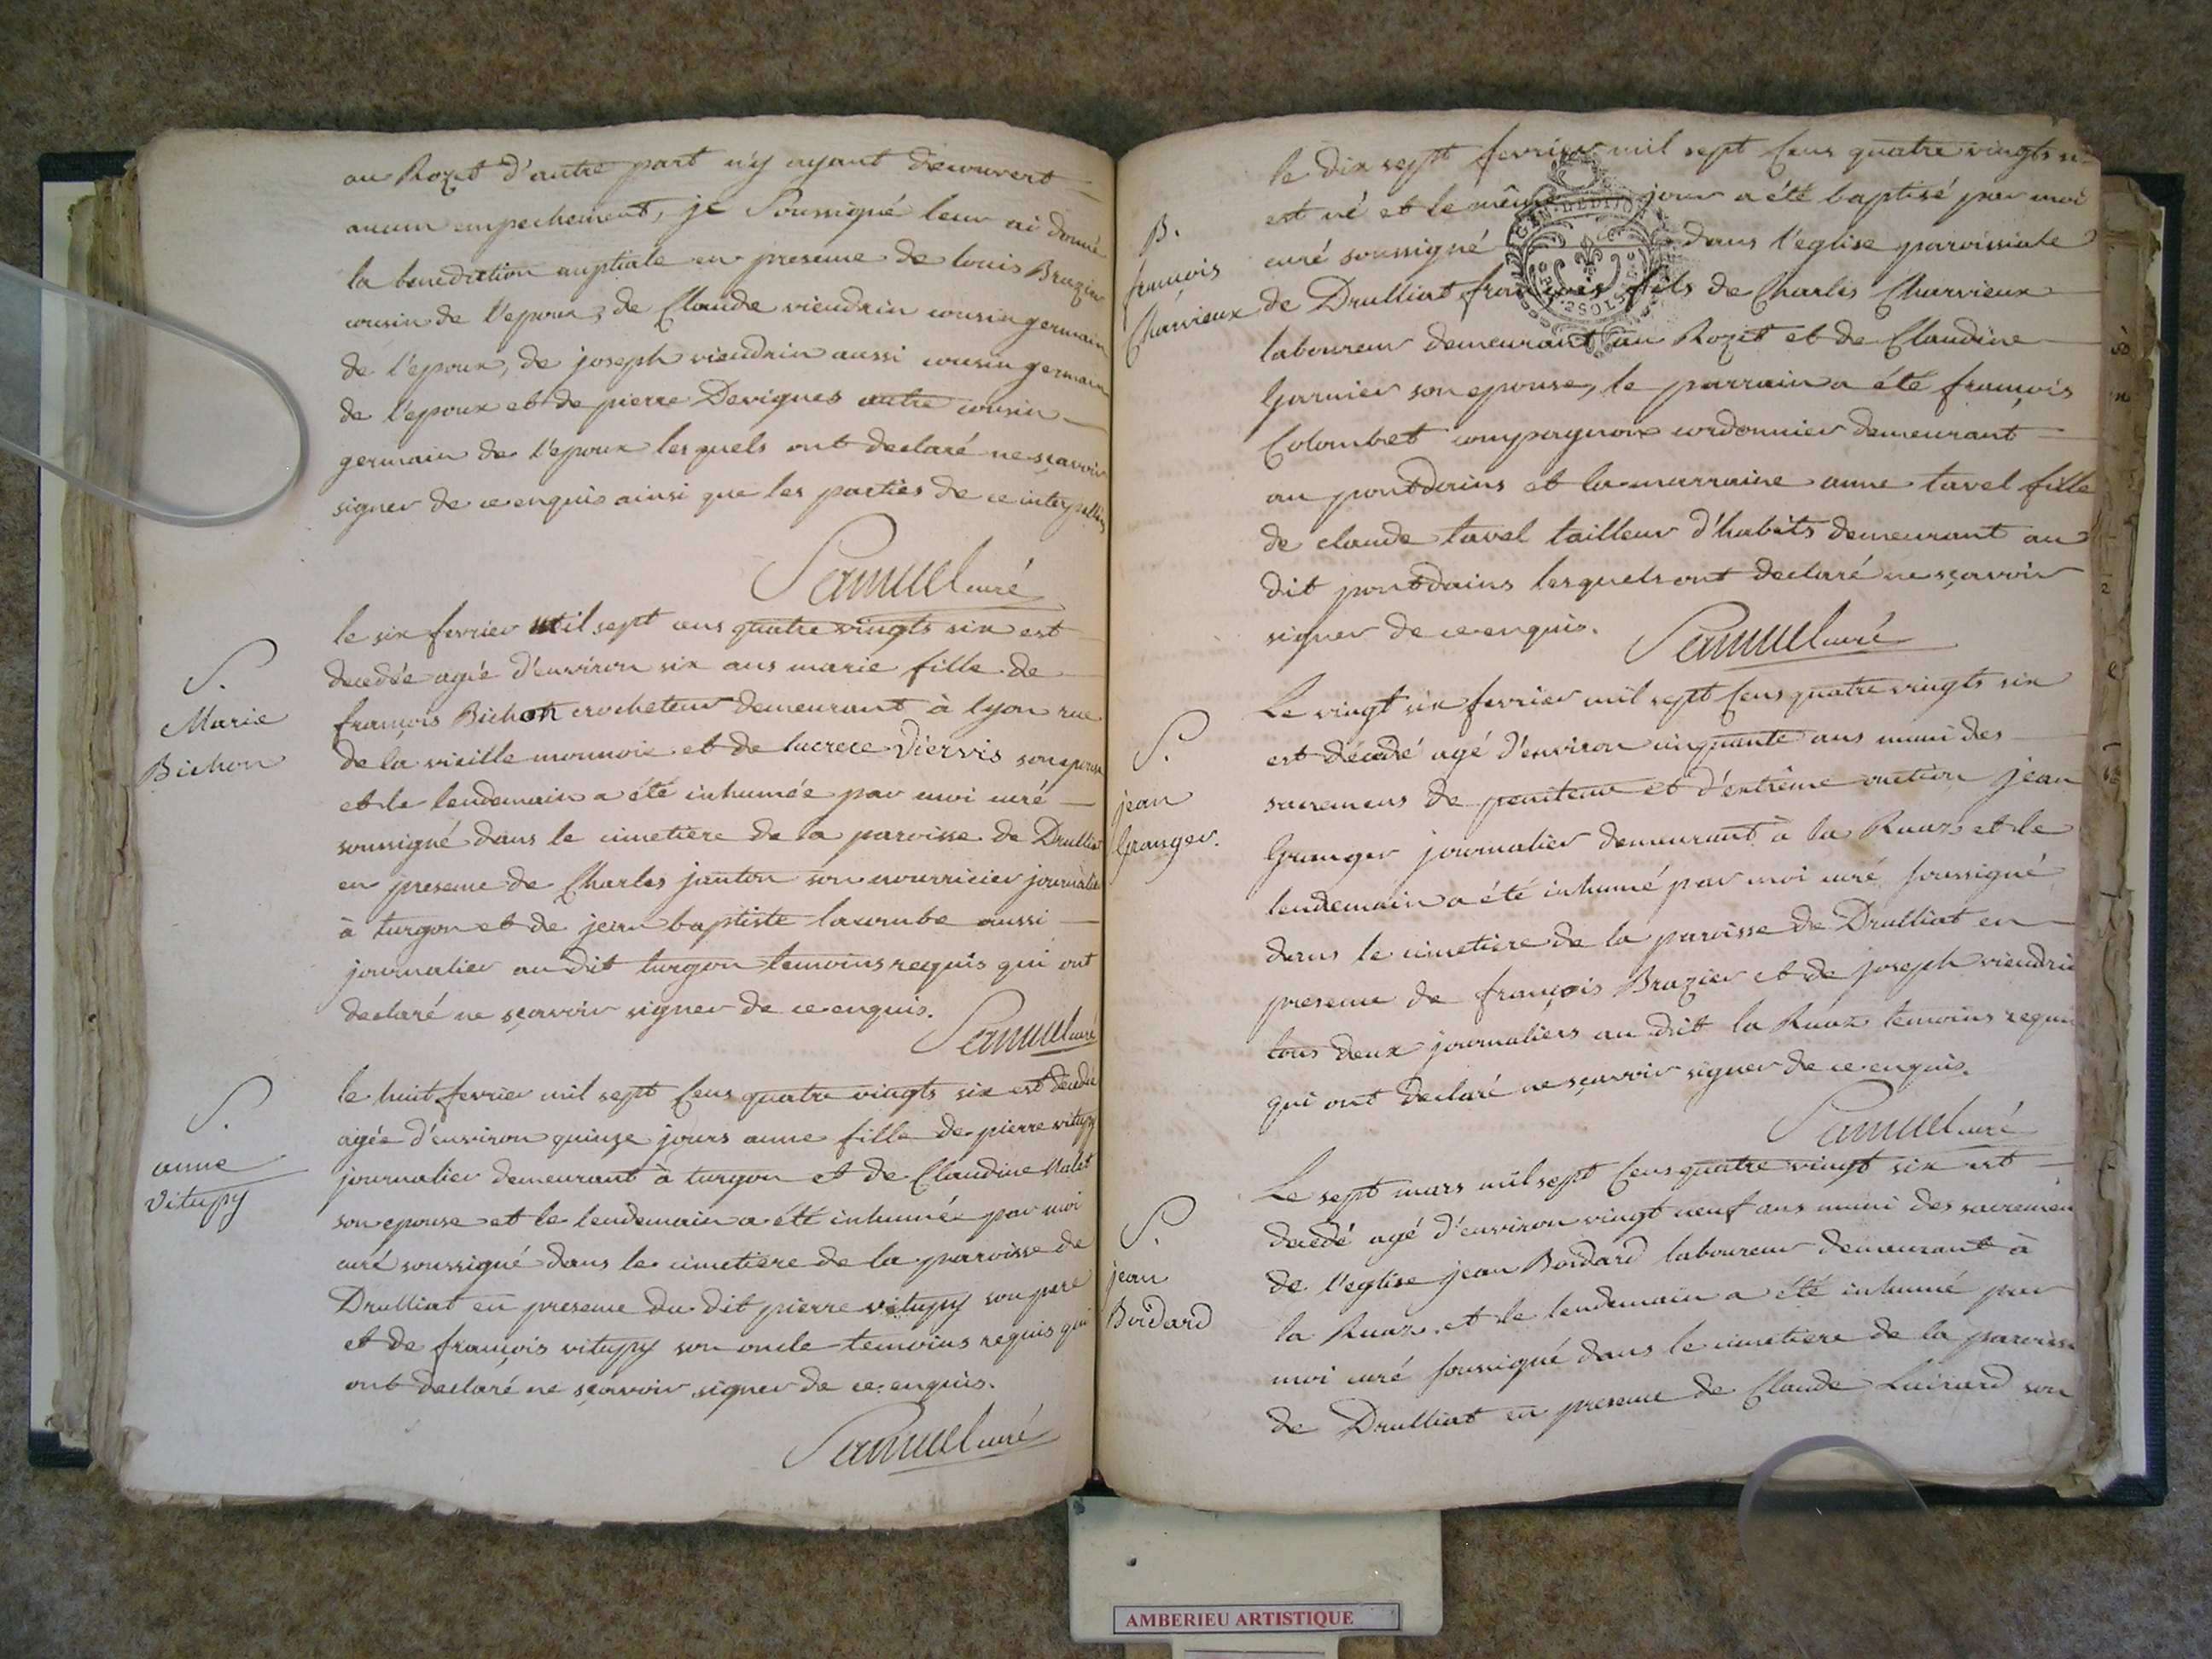 au Rozet d'autre part n'y ayant decouvert
aucun empechement, je Soussigné leur ai donné
la benediction nuptiale en presence de louis Brazier
cousin de l'epoux, de Claude viendrin cousin germain
de l'epoux, de joseph viendrin aussi cousin germain
de l'epoux et de pierre Devignes autre cousin
germain de l'epoux lesquels ont declaré ne sçavoir
signer de ce enquis ainsi que les parties de ce interpellées
Samuel curé
S.
Marie
Bichon
le six fevrier mil sept cens quatre vingts six est
decedée agée d'environ six ans marie fille de
françois Bichon crocheteur demeurant à lyon rue
de la vieille monnoie et de lucrece Diervis son epouse
et le lendemain a été inhumée par moi curé
soussigné dans le cimetiere de la paroisse de Drulliat
en presence de Charles janton son nourricier journalier
à turgon et de jean baptiste lacombe aussi
journalier au dit turgon temoins requis qui ont
declaré ne sçavoir signer de ce enquis.
Samuel curé
S.
anne
Vitupy
le huit fevrier mil sept Cens quatre vingts six est decedée
agée d'environ quinze jours anne fille de pierre vitupy
journalier demeurant à turgon et de Claudine Malet
son epouse et le lendemain a été inhumée par moi
curé soussigné dans le cimetiere de la paroisse de
Drulliat en presence du dit pierre vitupy son pere
et de françois vitupy son oncle temoins requis qui
ont declaré ne sçavoir signer de ce enquis.
Samuel curé
B.
françois
Charvieux
le dix sept fevrier mil sept Cens quatre vingts
est né et le même jour a été baptisé par moi
curé soussigné dans l'eglise paroissiale
de Drulliat françois fils de Charles Charvieux
laboureur demeurant au Rozet et de Claudine
Garnier son epouse, le parrain a été françois
Colombet compagnon cordonnier demeurant
au pontdains et la marraine anne tavel fille
de claude tavel tailleur d'habits demeurant au
dit pontdains lesquels ont declaré ne sçavoir
signer de ce enquis.
Samuel curé
S.
jean
Granger.
Le vingt six fevrier mil sept Cens quatre vingts six
est décedé agé d'environ cinquante ans muni des
sacremens de penitence et d'extrême onction jean
Granger journalier demeurant à la Ruaz et le
lendemain a été inhumé par moi curé soussigné
dans le cimetiere de la paroisse de Drulliat en
presence de françois Brazier et de joseph viendrin
tous deux journaliers au dit la Ruaz temoins requis
qui ont declaré ne sçavoir signer de ce enquis.
Samuel curé
S.
jean
Boidard
Le sept mars mil sept Cens quatre vingt six est
decedé agé d'environ vingt neuf ans muni des sacremens
de l'eglise jean Boidard laboureur demeurant à
la Ruaz et le lendemain a été inhumé par
moi curé soussigné dans le cimetiere de la paroisse
de Drulliat en presence de Claude son
AMBERIEU ARTISTIQUE